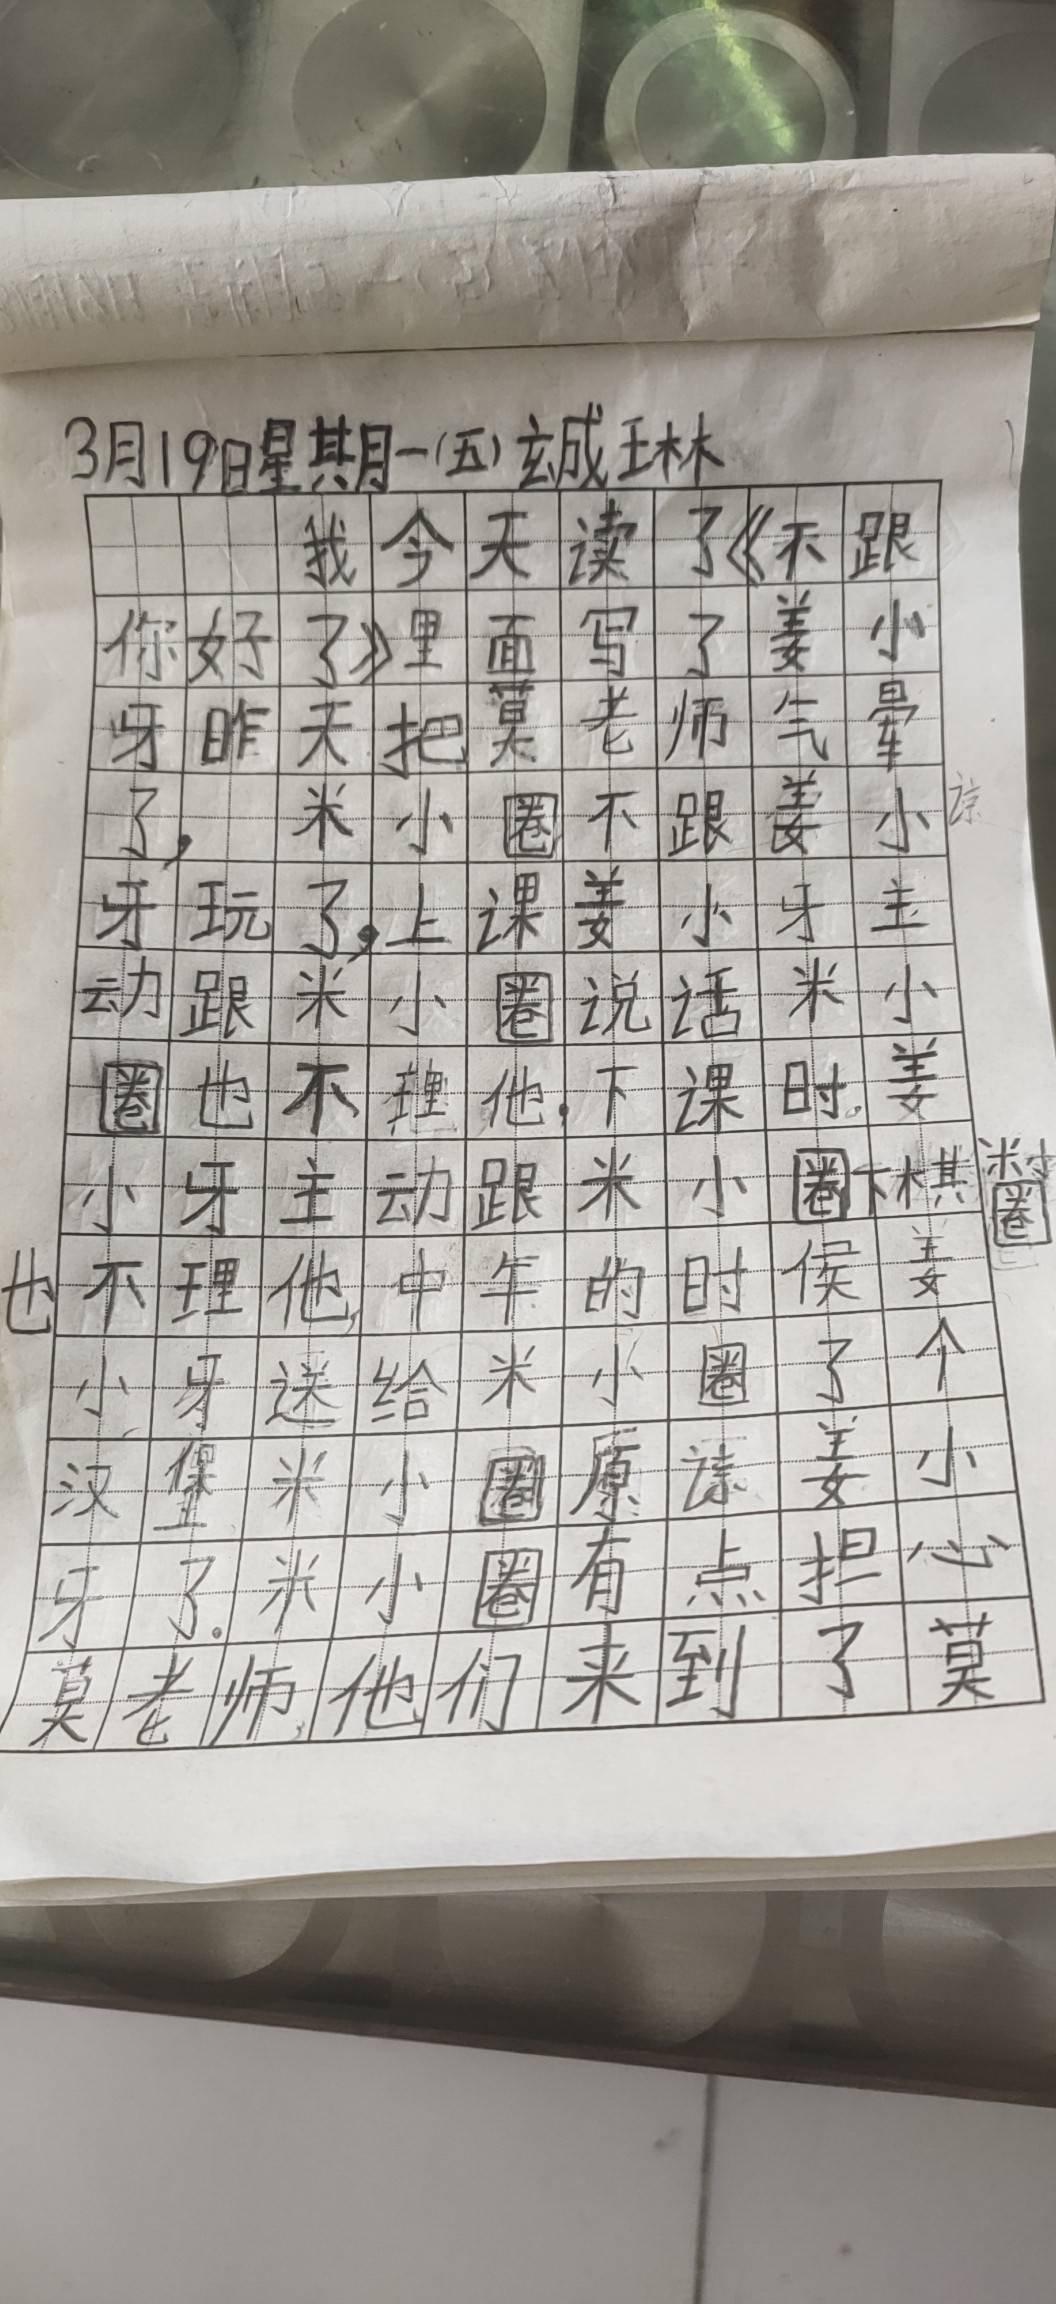 3月19日星期一(五)玄誠琳
我今天读了《不跟
你好了》里面写了姜小
牙昨天把莫老师气晕
了，米小圈不跟姜小
牙玩了，上课姜小牙主
动跟米小圈说话米小
圈也不理他，下课时，姜
小牙主动跟米小圈下棋米小圈
也不理他，中午的时侯姜
小牙送给米小圈了个
汉堡米小圈原谅姜小
牙了。米小圈有点担心
莫老师，他们来到了莫
谅